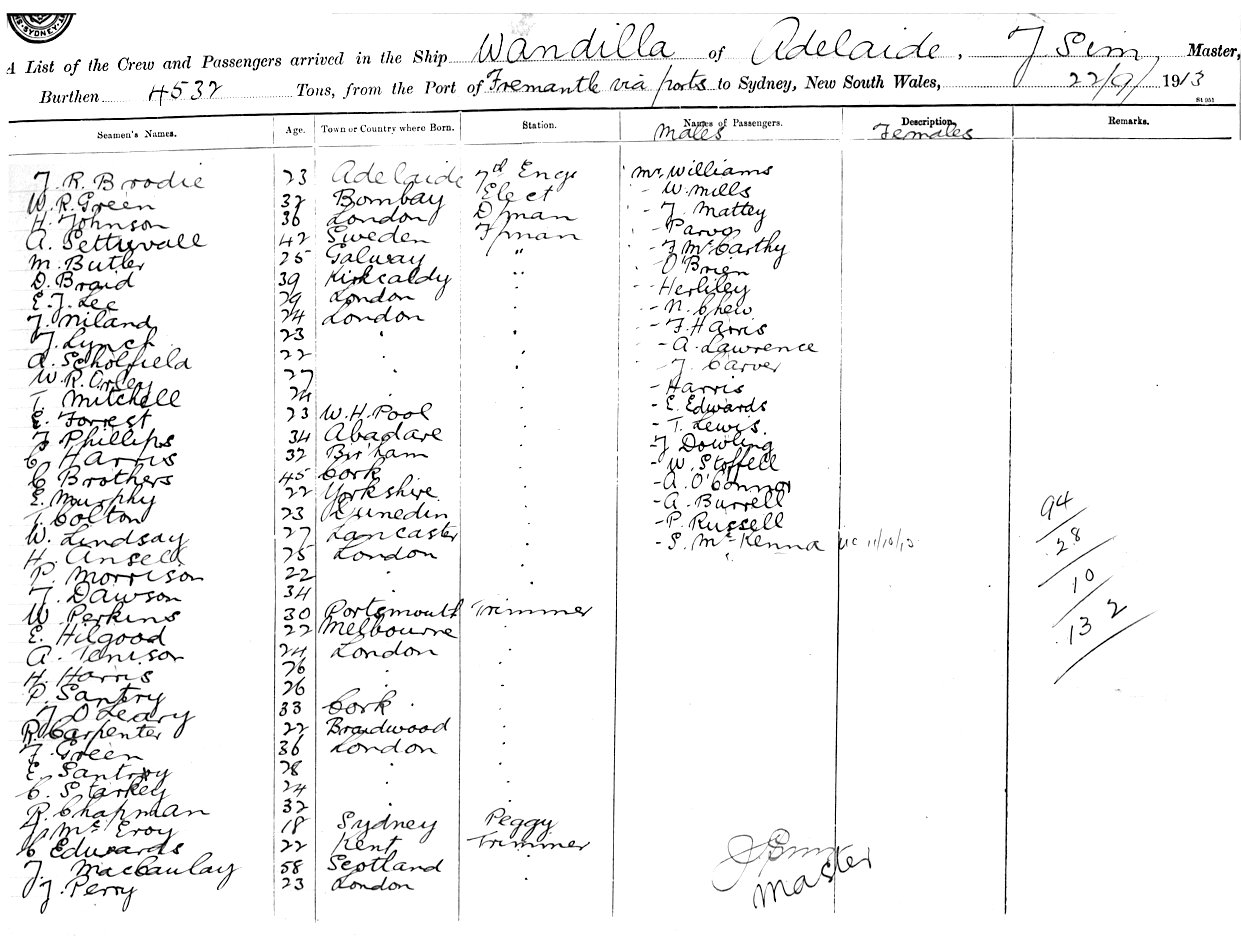 SYDNEY
A List of the Crew and Passengers arrived in the Ship Wandilla of Adelaide. J Sim Master,
Burthen 4532 Tons, from the Port of Fremantle via ports to Sydney, New South Wales, 22/9/ 1913
Seamen's Names. Age. Town or Country where Born. Station. Names of Passengers. Description Remarks.
Males Females
J. R. Brodie 23 Adelaide 7th Eng Mr Williams
W. R. Green 32 Bombay Elect - W. Mills
H. Johnson 36 London D/man - J. Mattey
A. Pettuvall 42 Sweden F/man - Parvos
M. Butler 25 Galway " - J McCarthy
D. Braid 39 Kirkcaldy " - O'Brien
E. J. Lee 29 London - Herliley
J. Niland 24 London - N. Chew
J. Lynch 23 - F. Harris
A. Scholfield 22 - A. Lawrence
W. R. 27 - J. Carver
T. Mitchell 24 - Harris
E. Forrest 23 W. H. Pool - E. Edwards
J Phillips 34 Abadare - T. Lewis.
C. Harris 32 Bir'ham - J Dowling
C Brothers 45 Cork - W. Stoffell
E. Murphy 22 Yorkshire - A. O'Connor
T. Colton 23 Dunedin - A. Burrell
W. Lindsay 27 Lancaster - P. Russell
H. Ansell 25 London - S. McKenna 11/10/13
P. Morrison 22
J. Dawson 34
W Perkins 30 Portsmouth Trimmer
E. Hilgood 22 Melbourne
A. Tenison 24 London
H. Harris 26
P. Santry 26
J O'Leary 33 Cork
R. Carpenter 22 Braidwood
F. Green 36 London
E. Santroy 28
C. Starkey 24
R. Chapman 32
J. McEroy 18 Sydney Peggy
C Edwards 22 Kent Trimmer
J. Maccaulay 58 Scotland
J. Perry 23 London
94
28
10
132
J Sim
Master